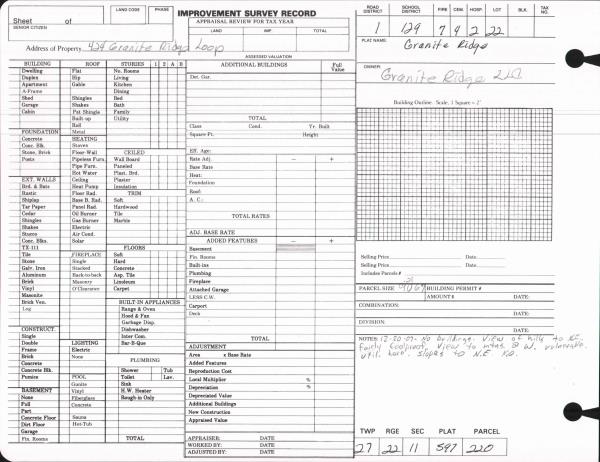 LAND CODE PHASE
IMPROVEMENT SURVEY RECORD
Sheet of
SENIOR CITIZEN
APPRAISAL REVIEW FOR TAX YEAR
LAND IMP. TOTAL
Address of Property 424 Granite Ridge Loop
ASSESSED VALUATION
ROAD DISTRICT SCHOOL DISTRICT FIRE CEM. HOSP. LOT BLK. TAX NO.
1 129 7 4 2 22
PLAT NAME:
Granite Ridge
OWNER:
Granite Ridge LLC
Building Outline. Scale, 1 Square = 2'
BUILDING ROOF STORIES 1 2 A B
Dwelling Flat No. Rooms
Duplex Hip Living
Apartment Gable Kitchen
A-Frame Dining
Shed Shingles Bed
Garage Shakes Bath
Cabin Pat Shingle Family
Built-up Utility
Roll
FOUNDATION Metal
Concrete HEATING
Conc. Blk. Stoves
Stone, Brick Floor-Wall CEILED
Posts Pipeless Furn. Wall Board
Pipe Furn. Paneled
Hot Water Plast. Brd.
EXT. WALLS Ceiling Plaster
Brd. & Bats Heat Pump Insulation
Rustic Floor Rad. TRIM
Shiplap Base B. Rad. Soft
Tar Paper Panel Rad. Hardwood
Cedar Oil Burner Tile
Shingles Gas Burner Marble
Shakes Electric
Stucco Air Cond.
Conc. Blks. Solar
TX-111 FLOORS
Tile FIREPLACE Soft
Stone Single Hard
Galv. Iron Stacked Concrete
Aluminum Back-to-back Asp. Tile
Brick Masonry Linoleum
Vinyl O'Clearance Carpet
Masonite
Brick Ven. BUILT-IN APPLIANCES
Log Range & Oven
Hood & Fan
Garbage Disp.
CONSTRUCT. Dishwasher
Single Inter Com.
Double LIGHTING Bar-B-Que
Frame Electric
Brick None PLUMBING
Concrete
Concrete Blk. Shower Tub
Pumice POOL Toilet Lav.
Gunite Sink
BASEMENT Vinyl H.W. Heater
None Fiberglass Rough-in Only
Full Concrete
Part
Concrete Floor Sauna
Dirt Floor Hot-Tub
Garage
Fin. Rooms TOTAL
ADDITIONAL BUILDINGS Full Value
Det. Gar.
TOTAL
Class Cond. Yr. Built
Square Ft. Height
Eff. Age:
Rate Adj. − +
Base Rate
Heat:
Foundation
Roof:
A. C.:
TOTAL RATES
ADJ. BASE RATE
ADDED FEATURES − +
Basement
Fin. Rooms
Built-ins
Plumbing
Fireplace
Attached Garage
LESS C.W.
Carport
Deck
TOTAL
ADJUSTMENT
Area x Base Rate
Added Features
Reproduction Cost
Local Multiplier %
Depreciation %
Depreciated Value
Additional Buildings
New Construction
Appraised Value
APPRAISER: DATE
WORKED BY: DATE
ADJUSTED BY: DATE
Selling Price Date
Selling Price Date
Includes Parcels #
PARCEL SIZE BUILDING PERMIT #
AMOUNT $ DATE:
COMBINATION:
DATE:
DIVISION:
DATE:
NOTES: 12-20-07- No buildings. View of hills to NE.
Fairly
util. slopes to N.E.
TWP RGE SEC PLAT PARCEL
27 22 11 597 220